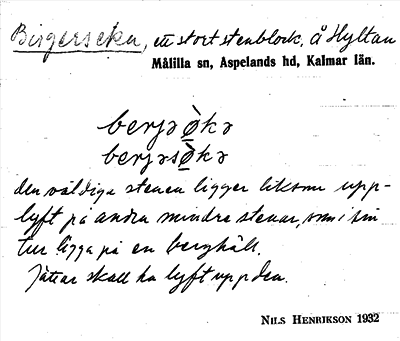 Birgerseka, ett stort stenblock, å Hyltan
Målilla sn, Aspelands hd, Kalmar län.
berjə økə
berjəsøkə
den väldiga stenen ligger liksom upp-
lyft på andra mindre stenar, som i sin
tur ligga på en berghäll.
Jättar skall ha lyft upp den.
NILS HENRIKSON 1932